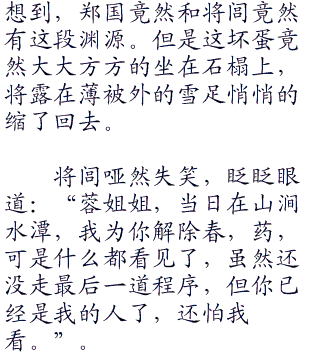 想到，郑国竟然和将闾竟然
有这段渊源。但是这坏蛋竟
然大大方方的坐在石榻上，
将露在薄被外的雪足悄悄的
缩了回去。
将闾哑然失笑，眨眨眼
道：“蓉姐姐，当日在山涧
水潭，我为你解除春，药，
可是什么都看见了，虽然还
没走最后一道程序，但你已
经是我的人了，还怕我
看。”。